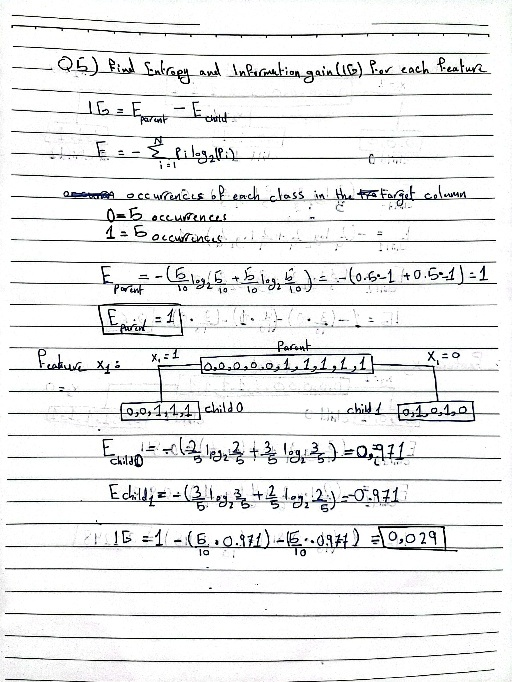 Q5) Find Entropy and Information gain (IG) for each feature
IG = E parent - E child
E = - N Σ i=1 Pi log2(Pi)
occurrences of each class in the target column
0=5 occurrences
1=5 occurrences
E parent = -(5/10 log2 5/10 + 5/10 log2 5/10) = -(0.5·-1 + 0.5·-1) = 1
E parent = 1
Parent
Feature x1: X1=1 0,0,0,0,0,1,1,1,1,1 X1=0
0,0,1,1,1 child 0 child 1 0,1,0,1,0
E child0 = -(2/5 log2 2/5 + 3/5 log2 3/5) = 0,971
E child1 = -(3/5 log2 3/5 + 2/5 log2 2/5) = 0.971
IG = 1 - (5/10 · 0.971) - (5/10 · 0.971) = 0,029